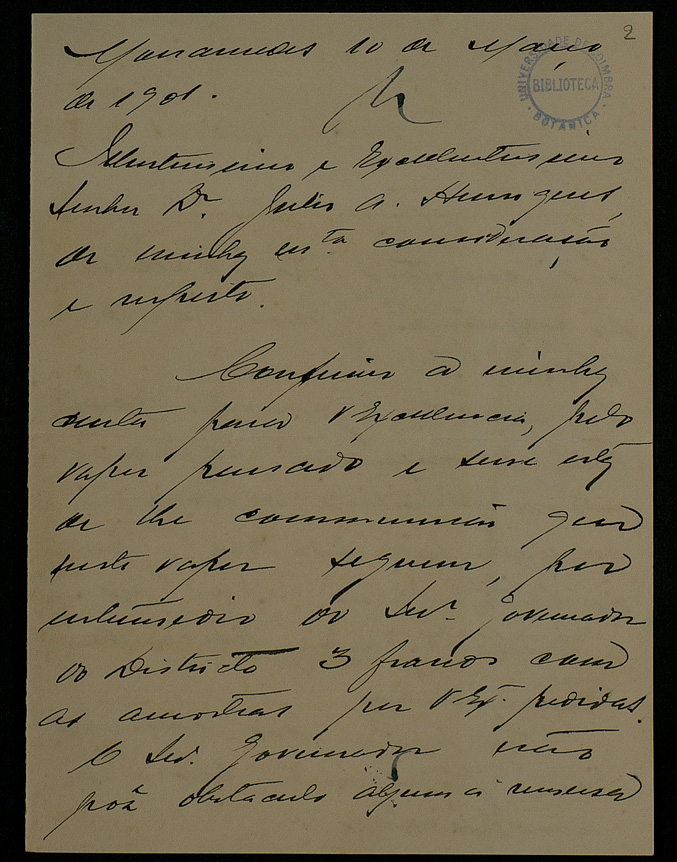 2
UNIVERSIDADE DE COIMBRA
BIBLIOTECA
BOTANICA
Mossamedes 10 de Março
de 1901.
Illustrissimo e Excellentissimo
Senhor Dr. Julio A. Henriques,
de minha consideração
e respeito.
Confirmo a minha
carta para VExcellencia, pelo
vapor passado e serve esta
de lhe communicar que
neste vapor seguem, por
intermedio do Snr. Governador
do Districto 3 frascos com
as amostras por VExª. pedidas.
O Snr. Governador não
põe obstaculo algum á remessa